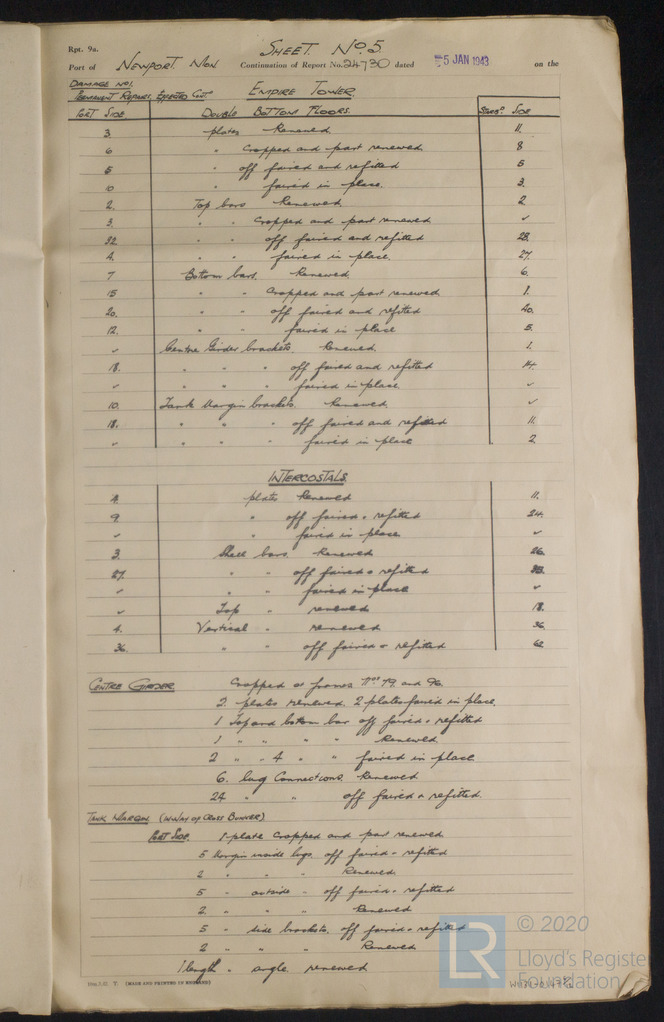 Rpt. 9a.
SHEET No 5
Port of NEWPORT. MON Continuation of Report No. 24730 dated 5 JAN 1943 on the
DAMAGE No 1.
PERMANENT REPAIRS. EFFECTED Contd EMPIRE TOWER.
PORT SIDE. DOUBLE BOTTOM FLOORS. STARBd SIDE
3 plates Renewed 11.
6 " Cropped and part renewed 8
5 " off faired and refitted 5
10 " faired in place. 3.
2. Top bars Renewed 2
3. " " Cropped and part renewed ✓
32 " " off faired and refitted 28.
4. " " faired in place. 27.
7 Bottom bars. Renewed. 6.
15 " " Cropped and part renewed 1.
20. " " off faired and refitted 40.
12. " " faired in place 5.
✓ Centre Girder brackets. Renewed. 1.
18. " " " off faired and refitted 14.
✓ " " " faired in place. ✓
10. Tank Margin brackets. Renewed. ✓
18. " " " off faired and refitted 11.
✓ " " " faired in place 2
INTERCOSTALS.
4. plates Renewed 11.
9. " off faired & refitted 24.
✓ " faired in place. ✓
3. Shell bars. Renewed 26.
27. " " off faired & refitted
✓ " " faired in place ✓
✓ Top " renewed 18.
4. Vertical " renewed 36.
36. " " off faired & refitted 62
CENTRE GIRDER Cropped at frames Nos 79 and 96.
2 plates renewed. 2 plates faired in place.
1 Top and bottom bar off faired & refitted
1 " " " " Renewed.
2 " " 4 " " faired in place
6. lug Connections. Renewed
24 " " off faired & refitted.
TANK MARGIN (IN WAY OF CROSS BUNKER)
PORT SIDE. 1 plate Cropped and part renewed
5 Margin inside lugs. off faired & refitted
2 " " " Renewed
5 " outside " off faired & refitted
2 " " " Renewed
5 " side brackets. off faired & refitted
2 " " " Renewed
1 length " angle. renewed
(MADE AND PRINTED IN ENGLAND)
LR
© 2020
Lloyd's Register
Foundation